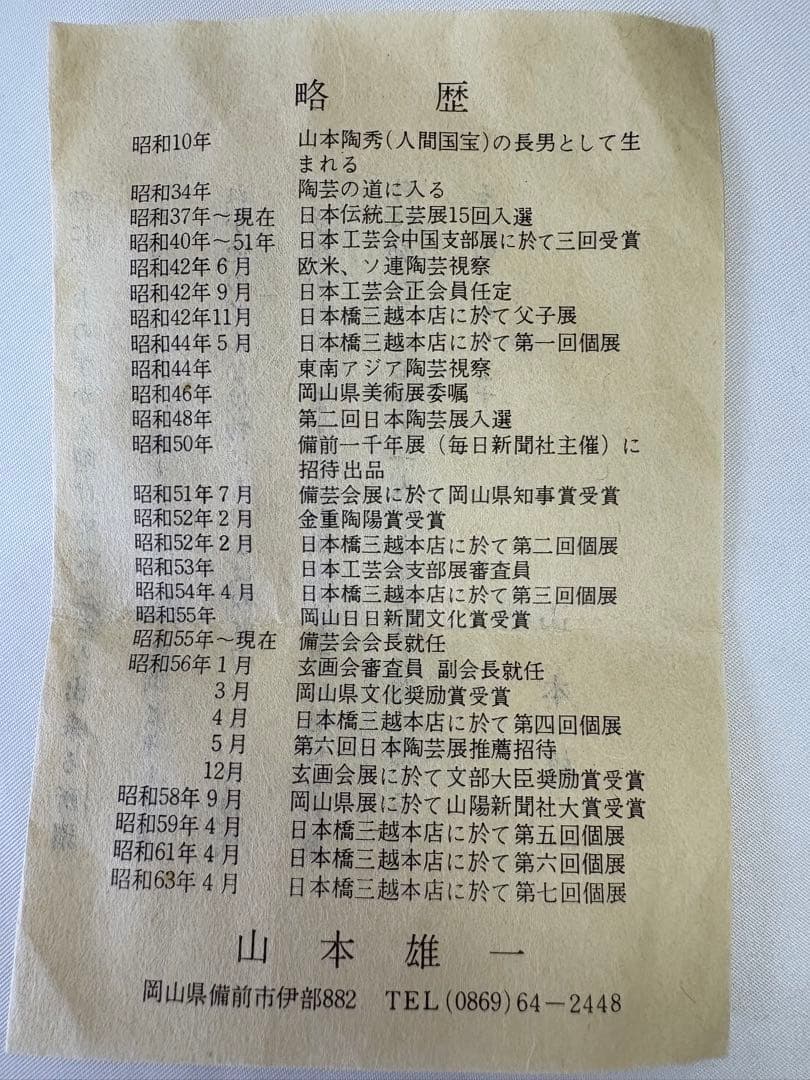 略歴
昭和10年 山本陶秀(人間国宝)の長男として生
まれる
昭和34年 陶芸の道に入る
昭和37年〜現在 日本伝統工芸展15回入選
昭和40年〜51年 日本工芸会中国支部展に於て三回受賞
昭和42年6月 欧米、ソ連陶芸視察
昭和42年9月 日本工芸会正会員任定
昭和42年11月 日本橋三越本店に於て父子展
昭和44年5月 日本橋三越本店に於て第一回個展
昭和44年 東南アジア陶芸視察
昭和46年 岡山県美術展委嘱
昭和48年 第二回日本陶芸展入選
昭和50年 備前一千年展(毎日新聞社主催)に
招待出品
昭和51年7月 備芸会展に於て岡山県知事賞受賞
昭和52年2月 金重陶陽賞受賞
昭和52年2月 日本橋三越本店に於て第二回個展
昭和53年 日本工芸会支部展審査員
昭和54年4月 日本橋三越本店に於て第三回個展
昭和55年 岡山日日新聞文化賞受賞
昭和55年〜現在 備芸会会長就任
昭和56年1月 玄画会審査員 副会長就任
3月 岡山県文化奨励賞受賞
4月 日本橋三越本店に於て第四回個展
5月 第六回日本陶芸展推薦招待
12月 玄画会展に於て文部大臣奨励賞受賞
昭和58年9月 岡山県展に於て山陽新聞社大賞受賞
昭和59年4月 日本橋三越本店に於て第五回個展
昭和61年4月 日本橋三越本店に於て第六回個展
昭和63年4月 日本橋三越本店に於て第七回個展
山本雄一
岡山県備前市伊部882 TEL(0869)64-2448